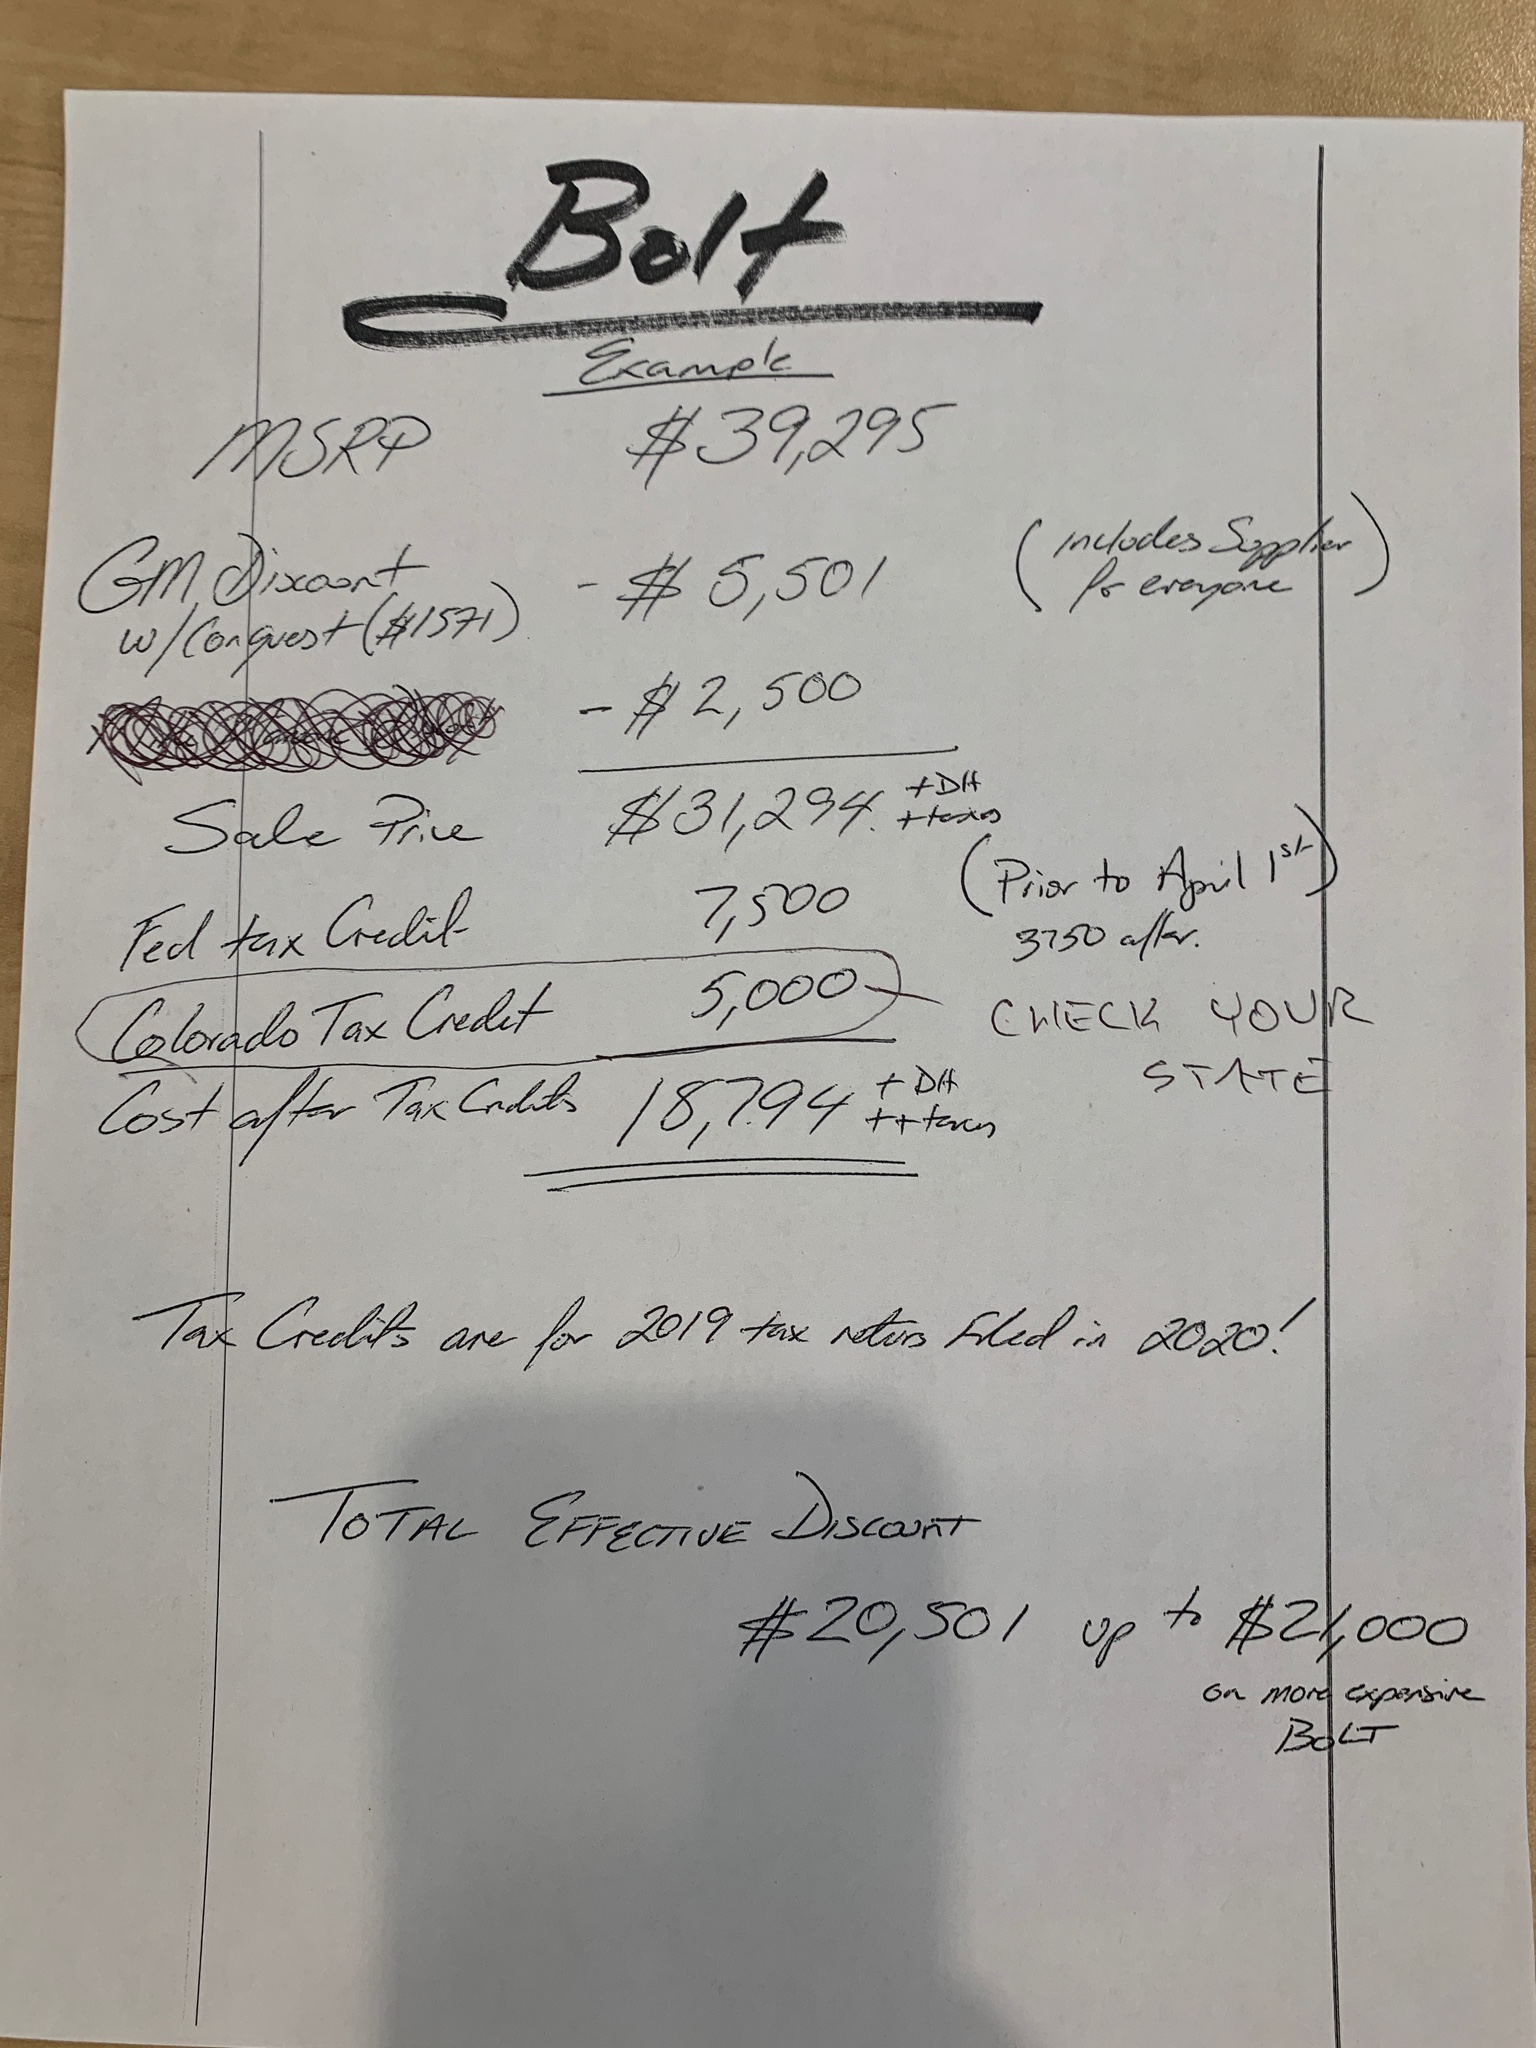 Bolt
Example
MSRP $39,295
GM Discount - $ 5,501 (includes Supplier
w/Conquest ($1571) for everyone)
- $ 2,500
Sale Price $31,294. + DH
++taxes
Fed tax Credit 7,500 (Prior to April 1st)
3750 after.
Colorado Tax Credit 5,000 CHECK YOUR
STATE
Cost after Tax Credits 18,794 + DH
++taxes
Tax Credits are for 2019 tax returs filed in 2020!
TOTAL EFFECTIVE DISCOUNT
$20,501 up to $21,000
on more expensive
BOLT